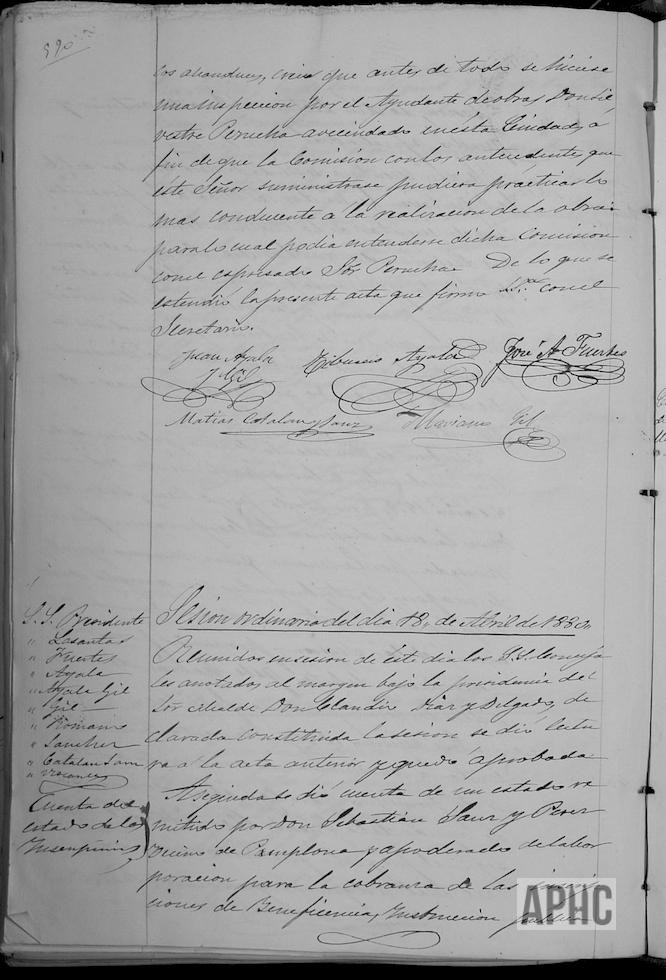 590
los abandure, creia que antes de todo se hiciese
una inspeccion por el Ayudante de obras Don Sil
vestre Perucha avecindado en ésta Ciudad, á
fin de que la Comision con los antecedentes que
este Señor suministrase pudiera practicar lo
mas conducente á la realizacion de la obra
para lo cual podia entenderse dicha Comision
con el espresado Sõr Perucha. De lo que se
estendió la presente acta que firma con el
Secretario.
Juan Ayala
y Gil
Tiburcio Ayala
José A. Fuertes
Matias Catalan Sanz
Mariano Gil
S. S. Presidente
" Lasantas
" Fuertes
" Ayala
" Ayala Gil
" Gil
" Romano
" Sanchez
" Catalan Sanz
Sesion ordinaria del dia 18 de Abril de 1880
Reunidos en sesion de éste dia los S. S. Conceja
les anotados al margen bajo la presidencia del
Sor Alcalde Don Claudio Diaz y Delgado, de
clarada constituida la sesion se dió lectu
ra á la acta anterior y quedó aprobada
Cuenta del
estado de las
Inscripcines
Aseguida se dió cuenta de un estado re
mitido por Don Sebastian Sanz y Perez
Vecino de Pamplona y apoderado de la Cor
poracion para la cobranza de las inscrip
ciones de Beneficencia, Instruccion publica
APHC